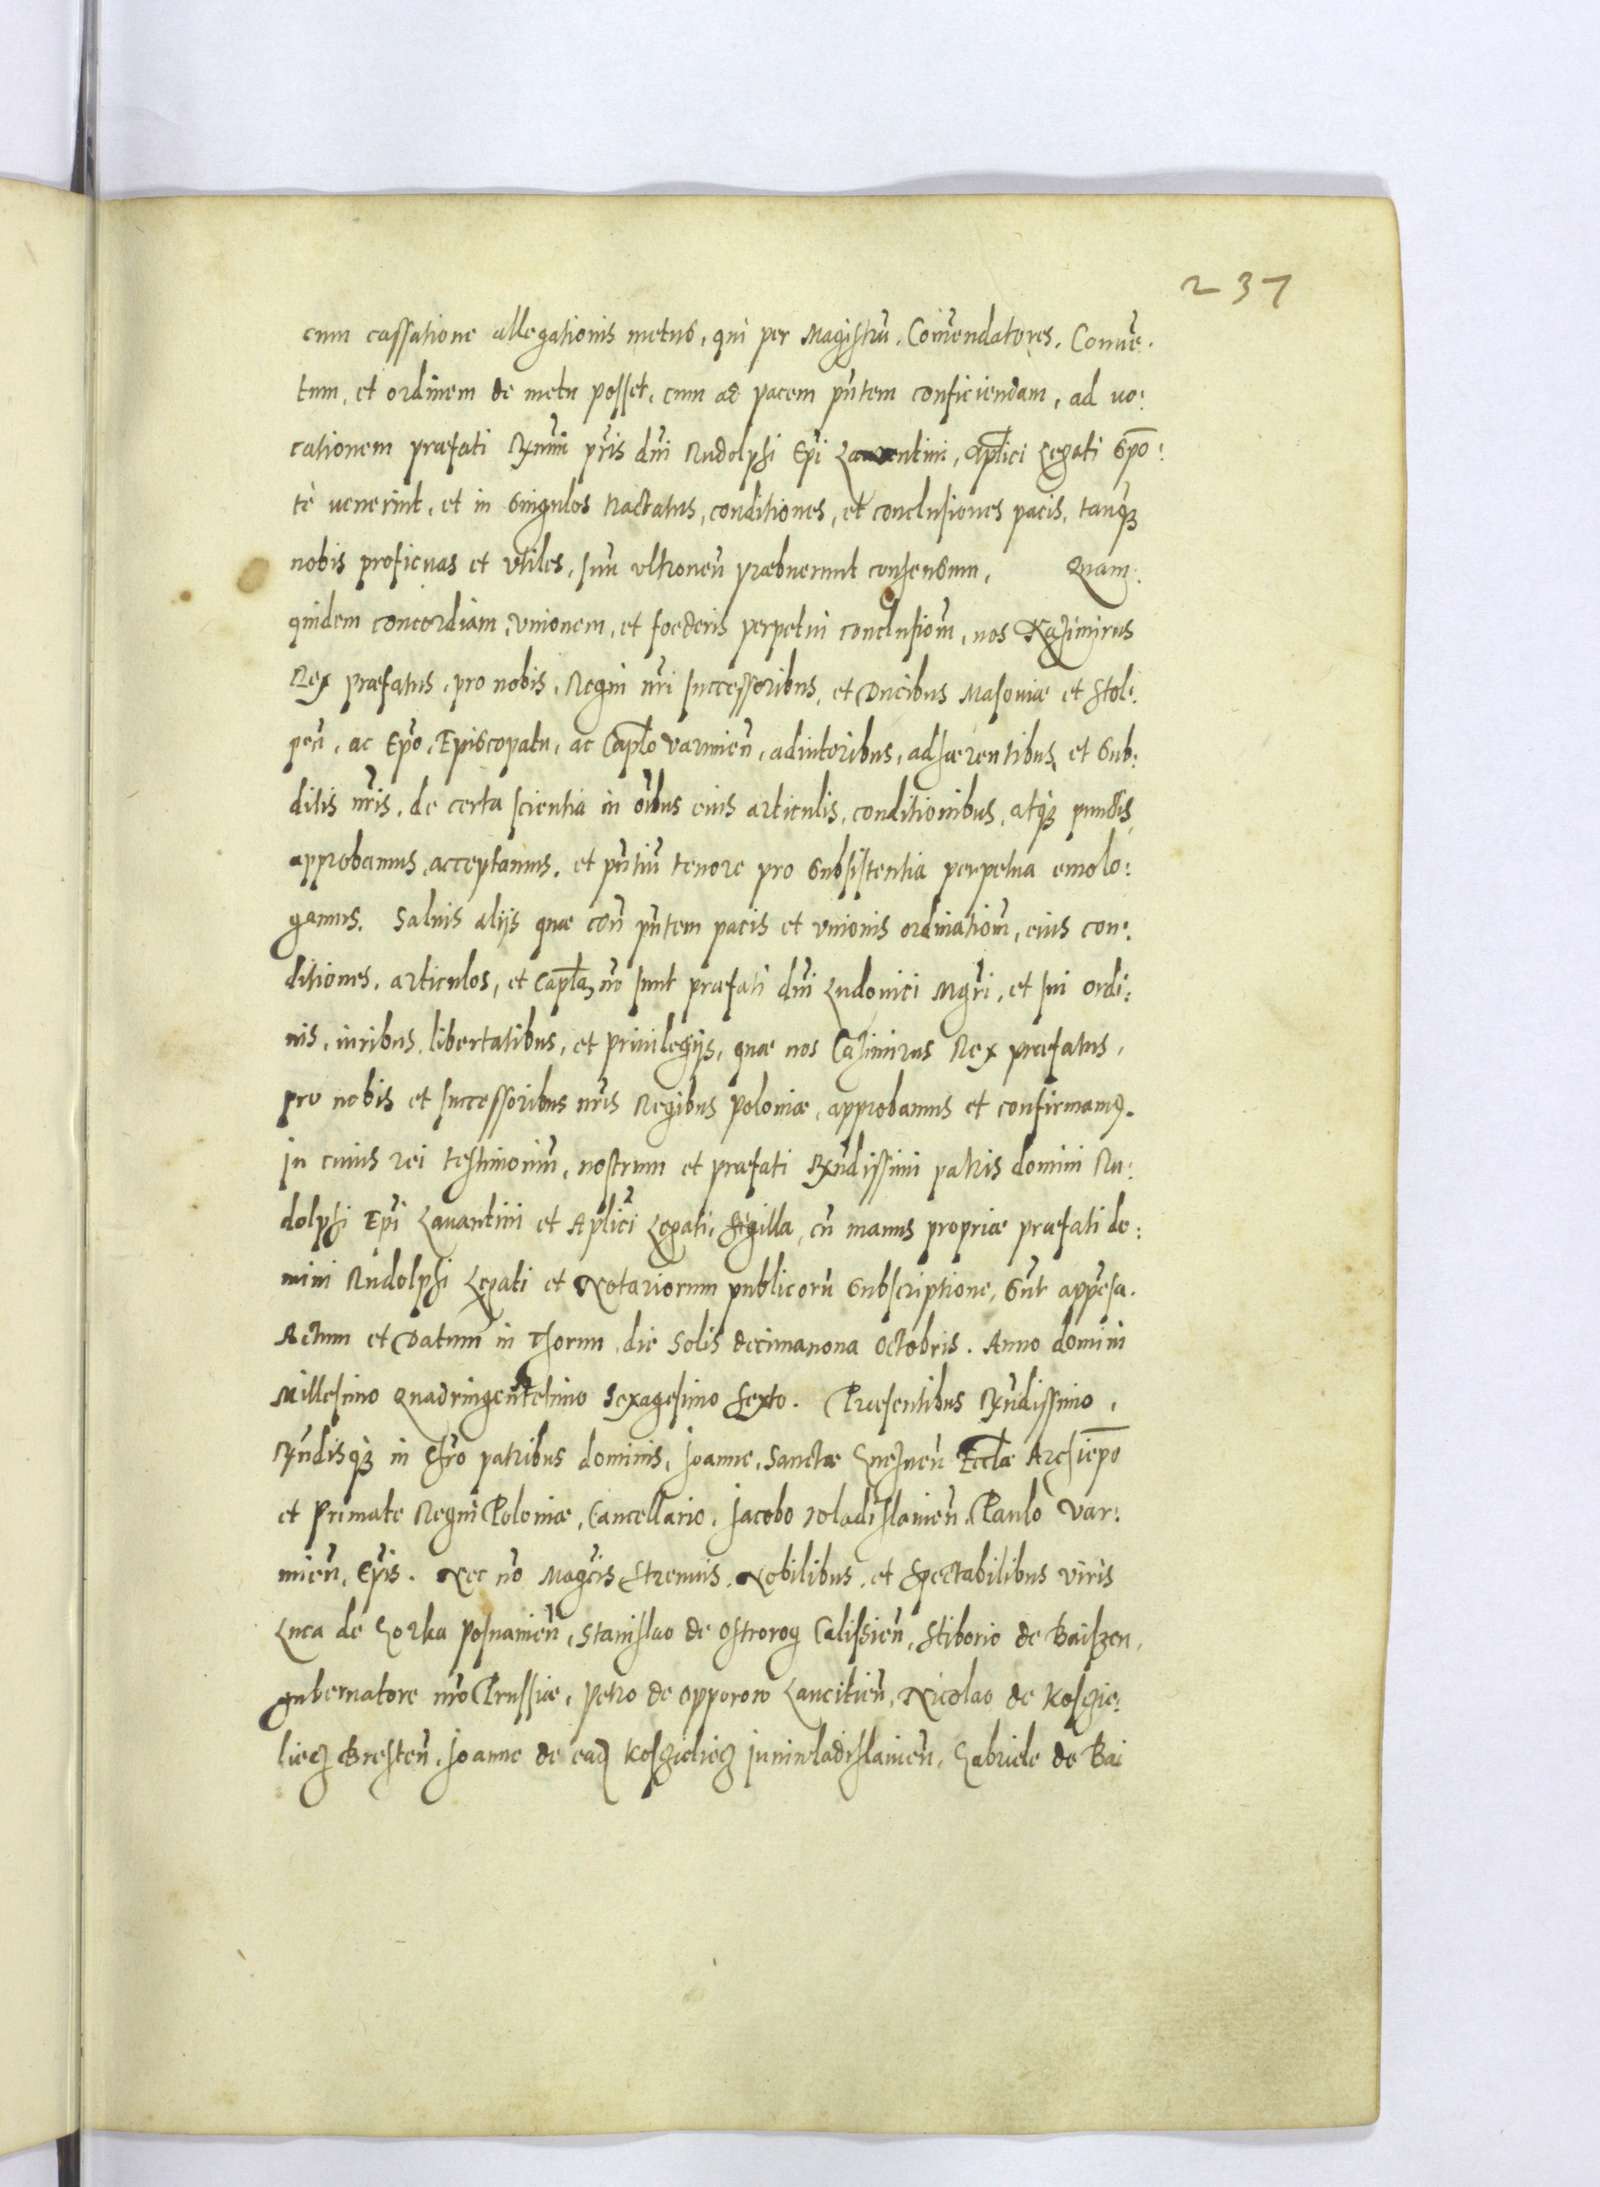 237
cum cassatione allegationis metus, qui per Magistrū, Com̄endatores, Conuē:
tum, et ordinem de metu posset, cum ad pacem pn̄tem conficiendam, ad uo:
cationem præfati Rn̄mi pr̄is dn̄i Rudolphi Ep̄i Lauentini, Ap̄lici Legati Spō:
tè uenerint, et in singulos tractatus, conditiones, et conclusiones pacis, tanq̃ȝ
nobis proficuas et vtiles, suū vltroneū præbuerunt consensum, Quam:
quidem concordiam, vnionem, et foederis perpetui conclusionē, nos Kazimirus
Rex præfatus, pro nobis, Regni nr̄i successoribus, et Ducibus Masouiæ et Stol:
pen̄, ac Ep̄o, Episcopatu, ac Cap̄lo Varmien̄, adiutoribus, adhærentibus, et Sub:
ditis nr̄is, de certa scientia in om̄ibus eius articulis, conditionibus, atq̃ȝ punctis,
approbamus, acceptamus, et pn̄tiū tenore pro subsistentia perpetua emolo:
gamus. Saluis alijs quæ con̄ pn̄tem pacis et vnionis ordinationē, eius con:
ditiones, articulos, et Cap̄la, nō sunt præfati dn̄i Ludouici Mgr̄i, et sui ordi:
nis, iuribus, libertatibus, et priuilegijs, quæ nos Cazimirus Rex præfatus,
pro nobis et successoribus nr̄is Regibus Poloniæ, approbamus et confirmamꝰ.
In cuius rei testimoniū, nostrum et præfati Rn̄dissimi patris domini Ru:
dolphi Ep̄i Lauantini et Ap̄lici Legati, Sigilla, cū manus propriæ præfati do:
mini Rudolphi Legati et Notariorum publicorū subscriptione, Sūt appēsa.
Actum et Datum in Thorun, die Solis decimanona Octobris. Anno domini
Millesimo Quadringentesimo Sexagesimo Sexto. Præsentibus Rn̄dissimo,
Rn̄disq̃ȝ in Chr̄o patribus dominis, Joanne, Sanctæ Gneznen̄ Eccl̄æ Archiep̄o
et Primate Regni Poloniæ, Cancellario, Jacobo Wladislauien̄, Paulo Var:
mien̄, Ep̄is. Nec nō Mag̃cis Strenuis, Nobilibus, et Spectabilibus viris
Luca de Gorka Posnanien̄, Stanislao de Ostrorog Calissien̄, Stiborio de Baiszen,
gubernatore nr̄o Prussiæ, Petro de Opporow Lancitien̄, Nicolao de Koszcie:
liecz Bresten̄, Joanne de ead̄ Koszcieliecz Juniwladislauien̄, Gabriele de Bai